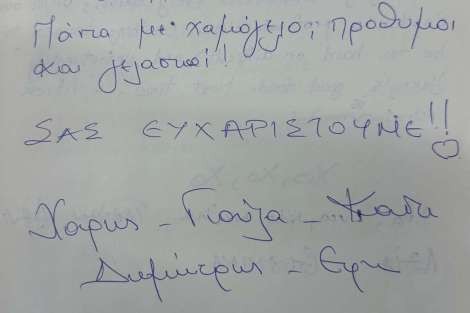 Πάντα με χαμόγελο, πρόθυμοι
και γελαστοί!
ΣΑΣ ΕΥΧΑΡΙΣΤΟΥΜΕ!!
Χάρης - Γιούλα -
Δημήτρης - Εφη